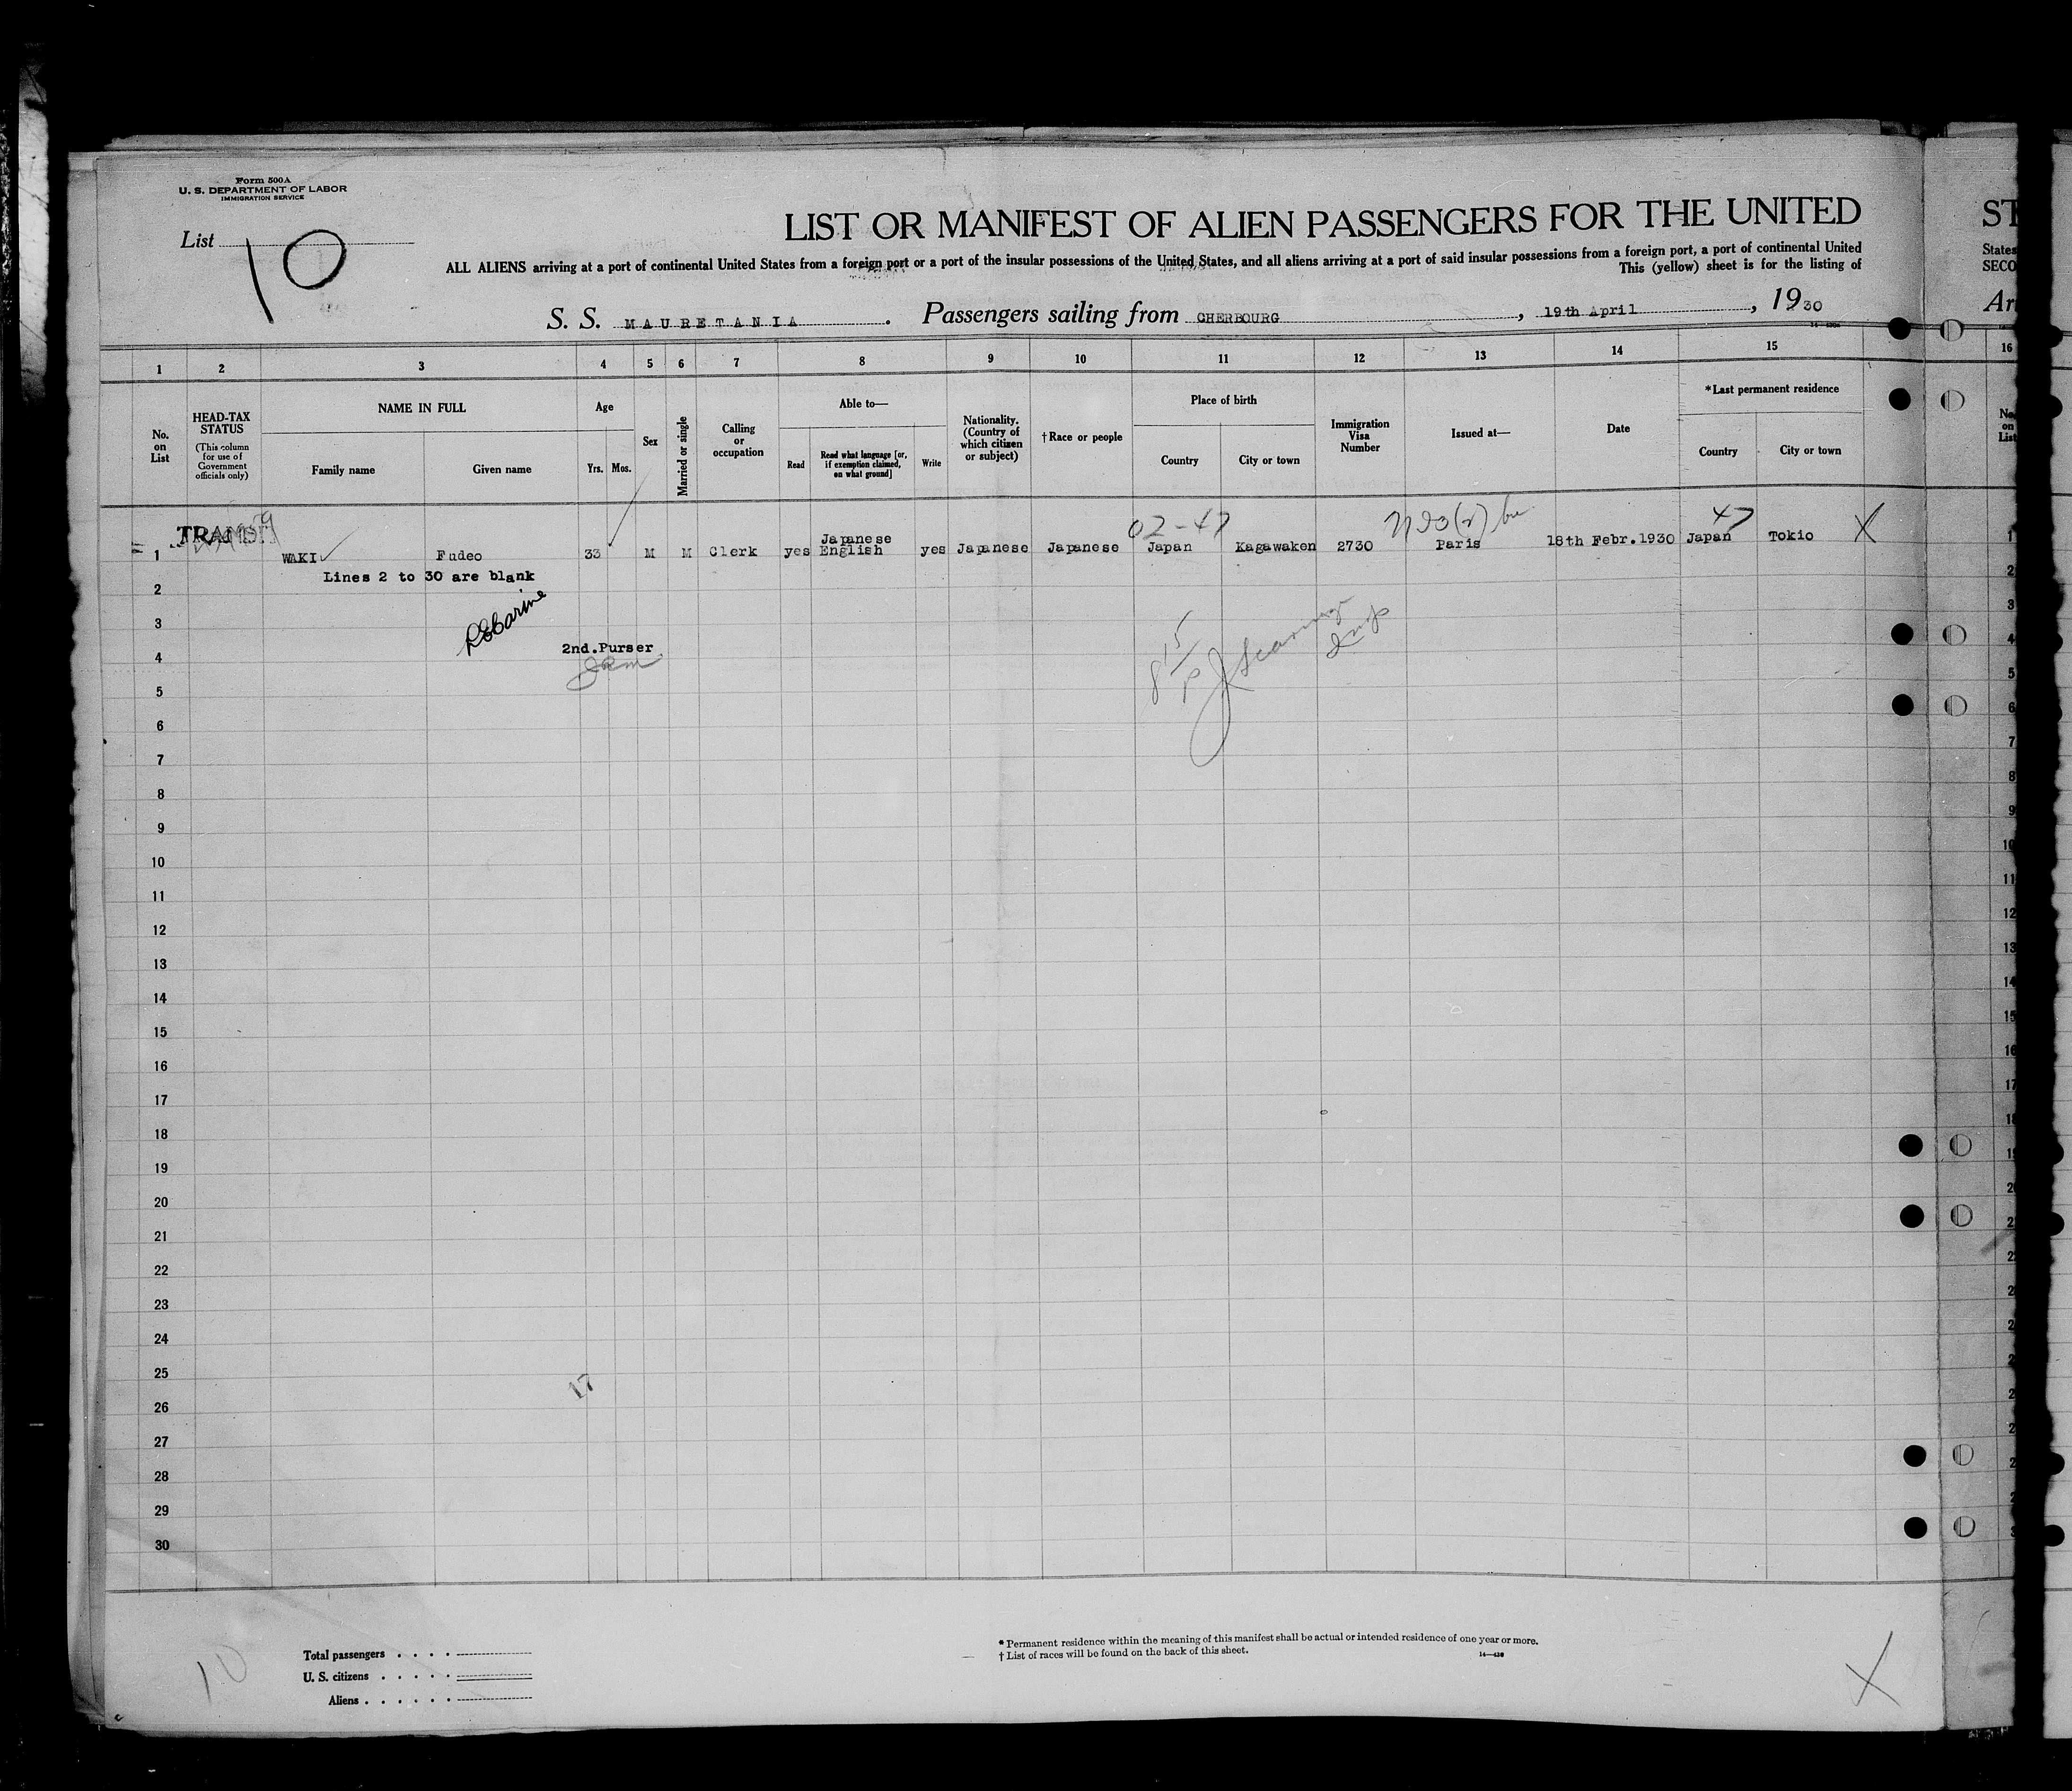 Form 500A
U. S. DEPARTMENT OF LABOR
IMMIGRATION SERVICE
List 10
LIST OR MANIFEST OF ALIEN PASSENGERS FOR THE UNITED
ALL ALIENS arriving at a port of continental United States from a foreign port or a port of the insular possessions of the United States, and all aliens arriving at a port of said insular possessions from a foreign port, a port of continental United
This (yellow) sheet is for the listing of
S. S. MAURETANIA. Passengers sailing from CHERBOURG, 19th April, 1930
ST
States
SECO
Ar
1 2 3 4 5 6 7 8 9 10 11 12 13 14 15 16
No. on List
HEAD-TAX STATUS
(This column for use of Government officials only)
NAME IN FULL
Family name
Given name
Age
Yrs. Mos.
Sex
Married or single
Calling or occupation
Able to—
Read
Read what language [or, if exemption claimed, on what ground]
Write
Nationality. (Country of which citizen or subject)
† Race or people
Place of birth
Country
City or town
Immigration Visa Number
Issued at—
Date
*Last permanent residence
Country
City or town
No. on List
02-47
47
TRANSIT
1 WAKI Fudeo 33 M M Clerk yes Japanese English yes Japanese Japanese Japan Kagawaken 2730 Paris 18th Febr.1930 Japan Tokio X
Lines 2 to 30 are blank
2
3
2nd.Purser
4
5
6
7
8
9
10
11
12
13
14
15
16
17
18
19
20
21
22
23
24
25
17
26
27
28
29
30
10
Total passengers
U. S. citizens
Aliens
* Permanent residence within the meaning of this manifest shall be actual or intended residence of one year or more.
† List of races will be found on the back of this sheet.
X